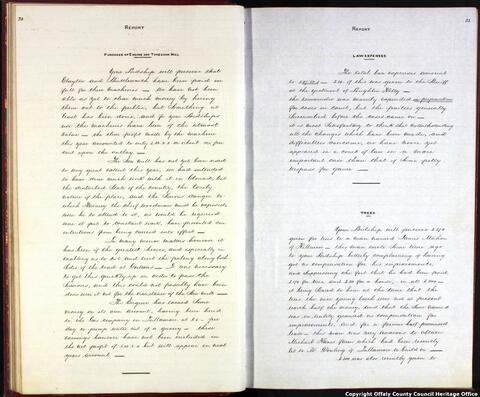 30
REPORT
PURCHASE OF ENGINE AND THRESHING MILL
Your Lordship will perceive that
Clayton and Shuttleworth have been paid in
full for their machines — We have not been
able as yet to clear much money by hiring
them out to the public, but something at
least has been done, and to your Lordships
use the machines have been of the utmost
value — the clear profit made by the machine
this year amounted to only
cent upon the outlay —
The Saw Mill has not yet been used
to any great extent this year, we had intended
to have done much work with it at Cloneal, but
the disturbed state of the country, the lonely
nature of the place, and the serious danger to
which the chief woodman would be exposed
were he to attend to it, as would be required
was it put to constant work, have prevented our
intentions from being carried into effect —
In many minor matters however it
has been of the greatest service, and especially in
enabling us to cut and erect the paling along both
sides of the road at — It was necessary
to get this quickly up in order to plant the
and this could not possibly have been
done were it not for the assistance of the Saw Mill —
The Engine has earned some
money on its own account, having been hired
to the Gas Company in Tullamore at £1 – per
day to pump water out of a quarry — these
earnings however have not been included in
the net profit of but will appear in next
years account —
31
REPORT
LAW EXPENSES
The total law expenses amount
to of this was given to the Sheriff
at the ejectment of
the remainder was mainly expended in preparation
for cases in court, but the parties generally
surrendered before the cases came on —
It is most satisfactory to think that notwithstanding
all the changes which have been made, and
difficulties overcome, we have never yet
appeared in a court of law on a more
important case than that of some petty
trespass for Game —
TREES
Your Lordship will perceive £150
given for trees to a man named James Mahon
of Killurin — this man wrote some time ago
to your Lordship bitterly complaining of having
got no compensation for his improvements,
and suppressing the fact that he had been paid
£150 for trees and £50 for a house, in all £200 —
being lent to him at the time that the
trees she was young were not at present
worth half the money and that the sum named
was in reality granted as compensation for
improvements, and for a former half promised
lease — this man was very anxious to obtain
Michael farm which had been recently
let to Mr of Tullamore to build on —
£200 was also recently given to
Copyright Offaly County Council Heritage Office